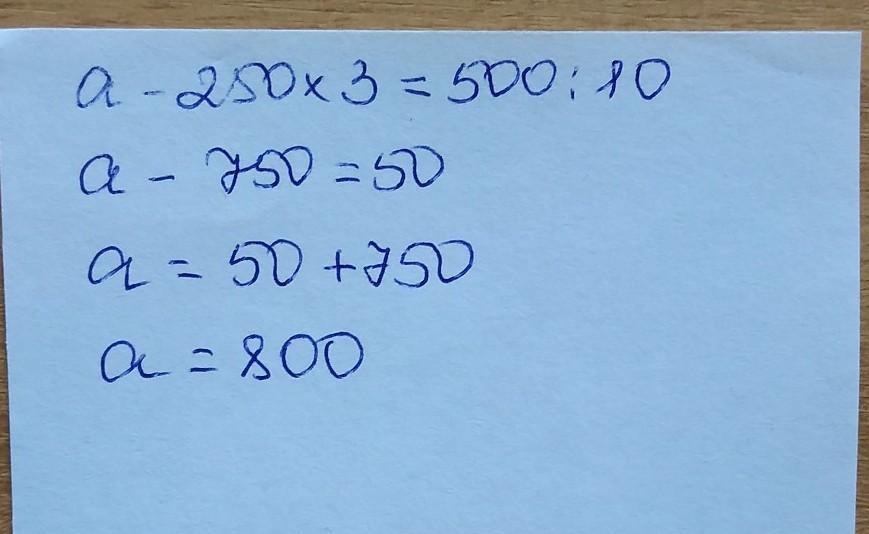 a - 250 x 3 = 500 : 10
a - 750 = 50
a = 50 + 750
a = 800